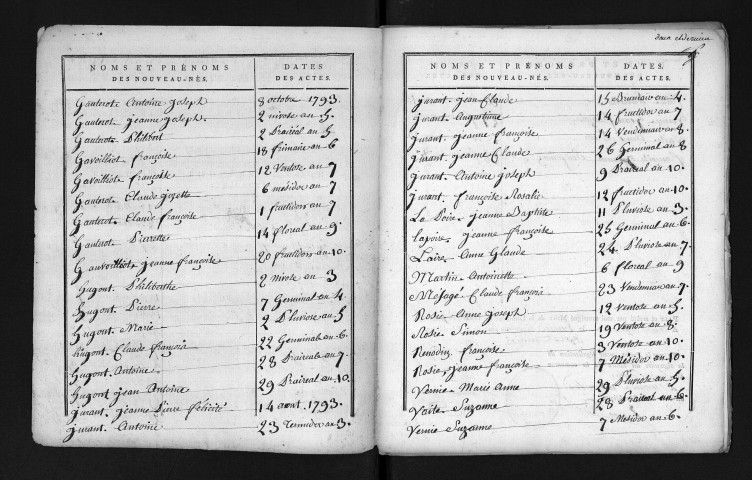 NOMS ET PRÉNOMS
DES NOUVEAU-NÉS.
DATES
DES ACTES.
Gauterot - Antoine Joseph 8 octobre 1793.
Gauterot - jeanne joseph. 2 nivose an 5.
Gauterot - Philibert 2 Prairéal an 5.
Gavoilliot françoise 18 frimaire an 6
Gavoilliot - françoise 12 Ventose an 7
Gauterot - Claude 6 mésidor an 7
Gauterot - Claude françoise 1 fructidore an 7
Gauterot - Pierrette 14 floreal an 9.
jeanne françoise 20 fructidore an 10.
hugont - Philiberthe 2 Nivose an 3
hugont - Pierre 7 Germinal an 4.
hugont - Marie 2 Pluviose an 5.
hugont - Claude françois 22 Germinal an 6.
hugont - Antoine 28 Prairéal an 7.
hugont jean Antoine 29 Prairéal an 10.
jurant - jeanne Pierre félicité 14 aout 1793.
jurant - Antoine 23 Termidor an 3.
NOMS ET PRÉNOMS
DES NOUVEAU-NÉS.
DATES
DES ACTES.
jurant - jean Claude 15 Brumiare an 4.
jurant - Augustinne 14 fructidor an 7
jurant - jeanne françoise 14 Vendemiaire an 8.
jurant - jeanne Claude 26 Germinal an 8
jurant - Antoine joseph 9 Prairéal an 10.
jurant - françoise Rosalie 12 fructidor an 10.
La Poire - jeanne Baptiste 11 Pluviose an 3.
lapoire - jeanne françoise 25 Germinal an 6.
Laire - Anne Glaude 24 Pluviose an 7.
Martin - Antoinette 6 floreal an 9
Claude françois 23 Vendemiaire an 7.
Rosie - Anne joseph 12 Ventose an 5.
Rosie - Simon 19 Ventose an 8.
françoise 3 Ventose an 10.
Rosie - jeanne françoise 7 Mésidor an 10.
Vernie - Marie Anne 29 Pluviose an 5.
Suzanne 28 Prairéal an 6.
Vernie Suzanne 7 Mésidor an 6.